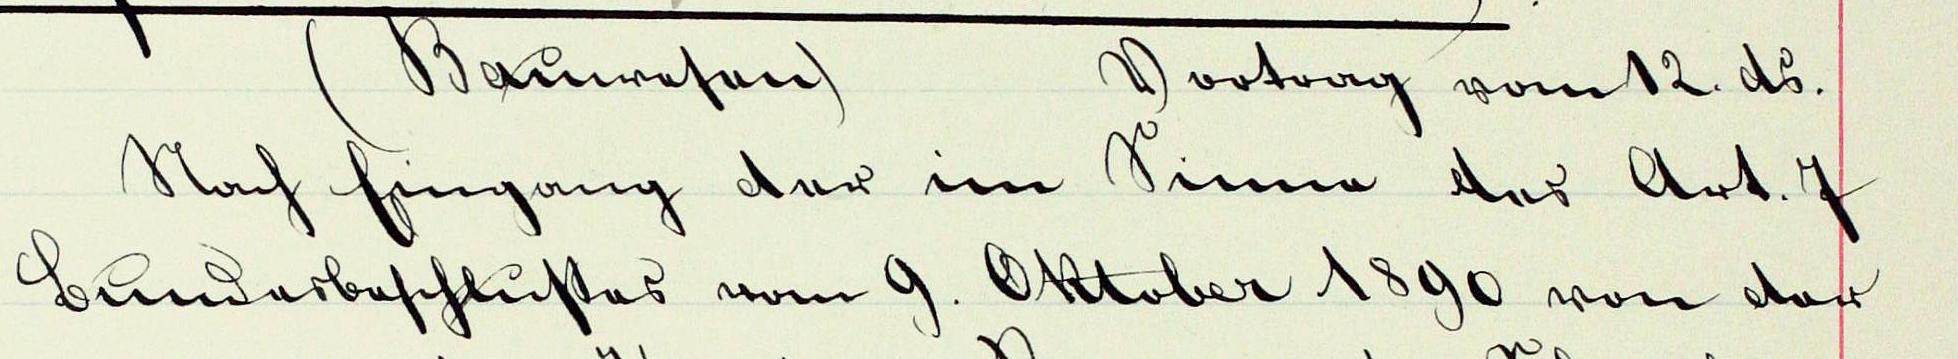 (Bauwesen) Vortrag vom 12. ds.
Nach Eingang der im Sinne des Art. 7
Bundesbeschlußes vom 9. Oktober 1890 von der